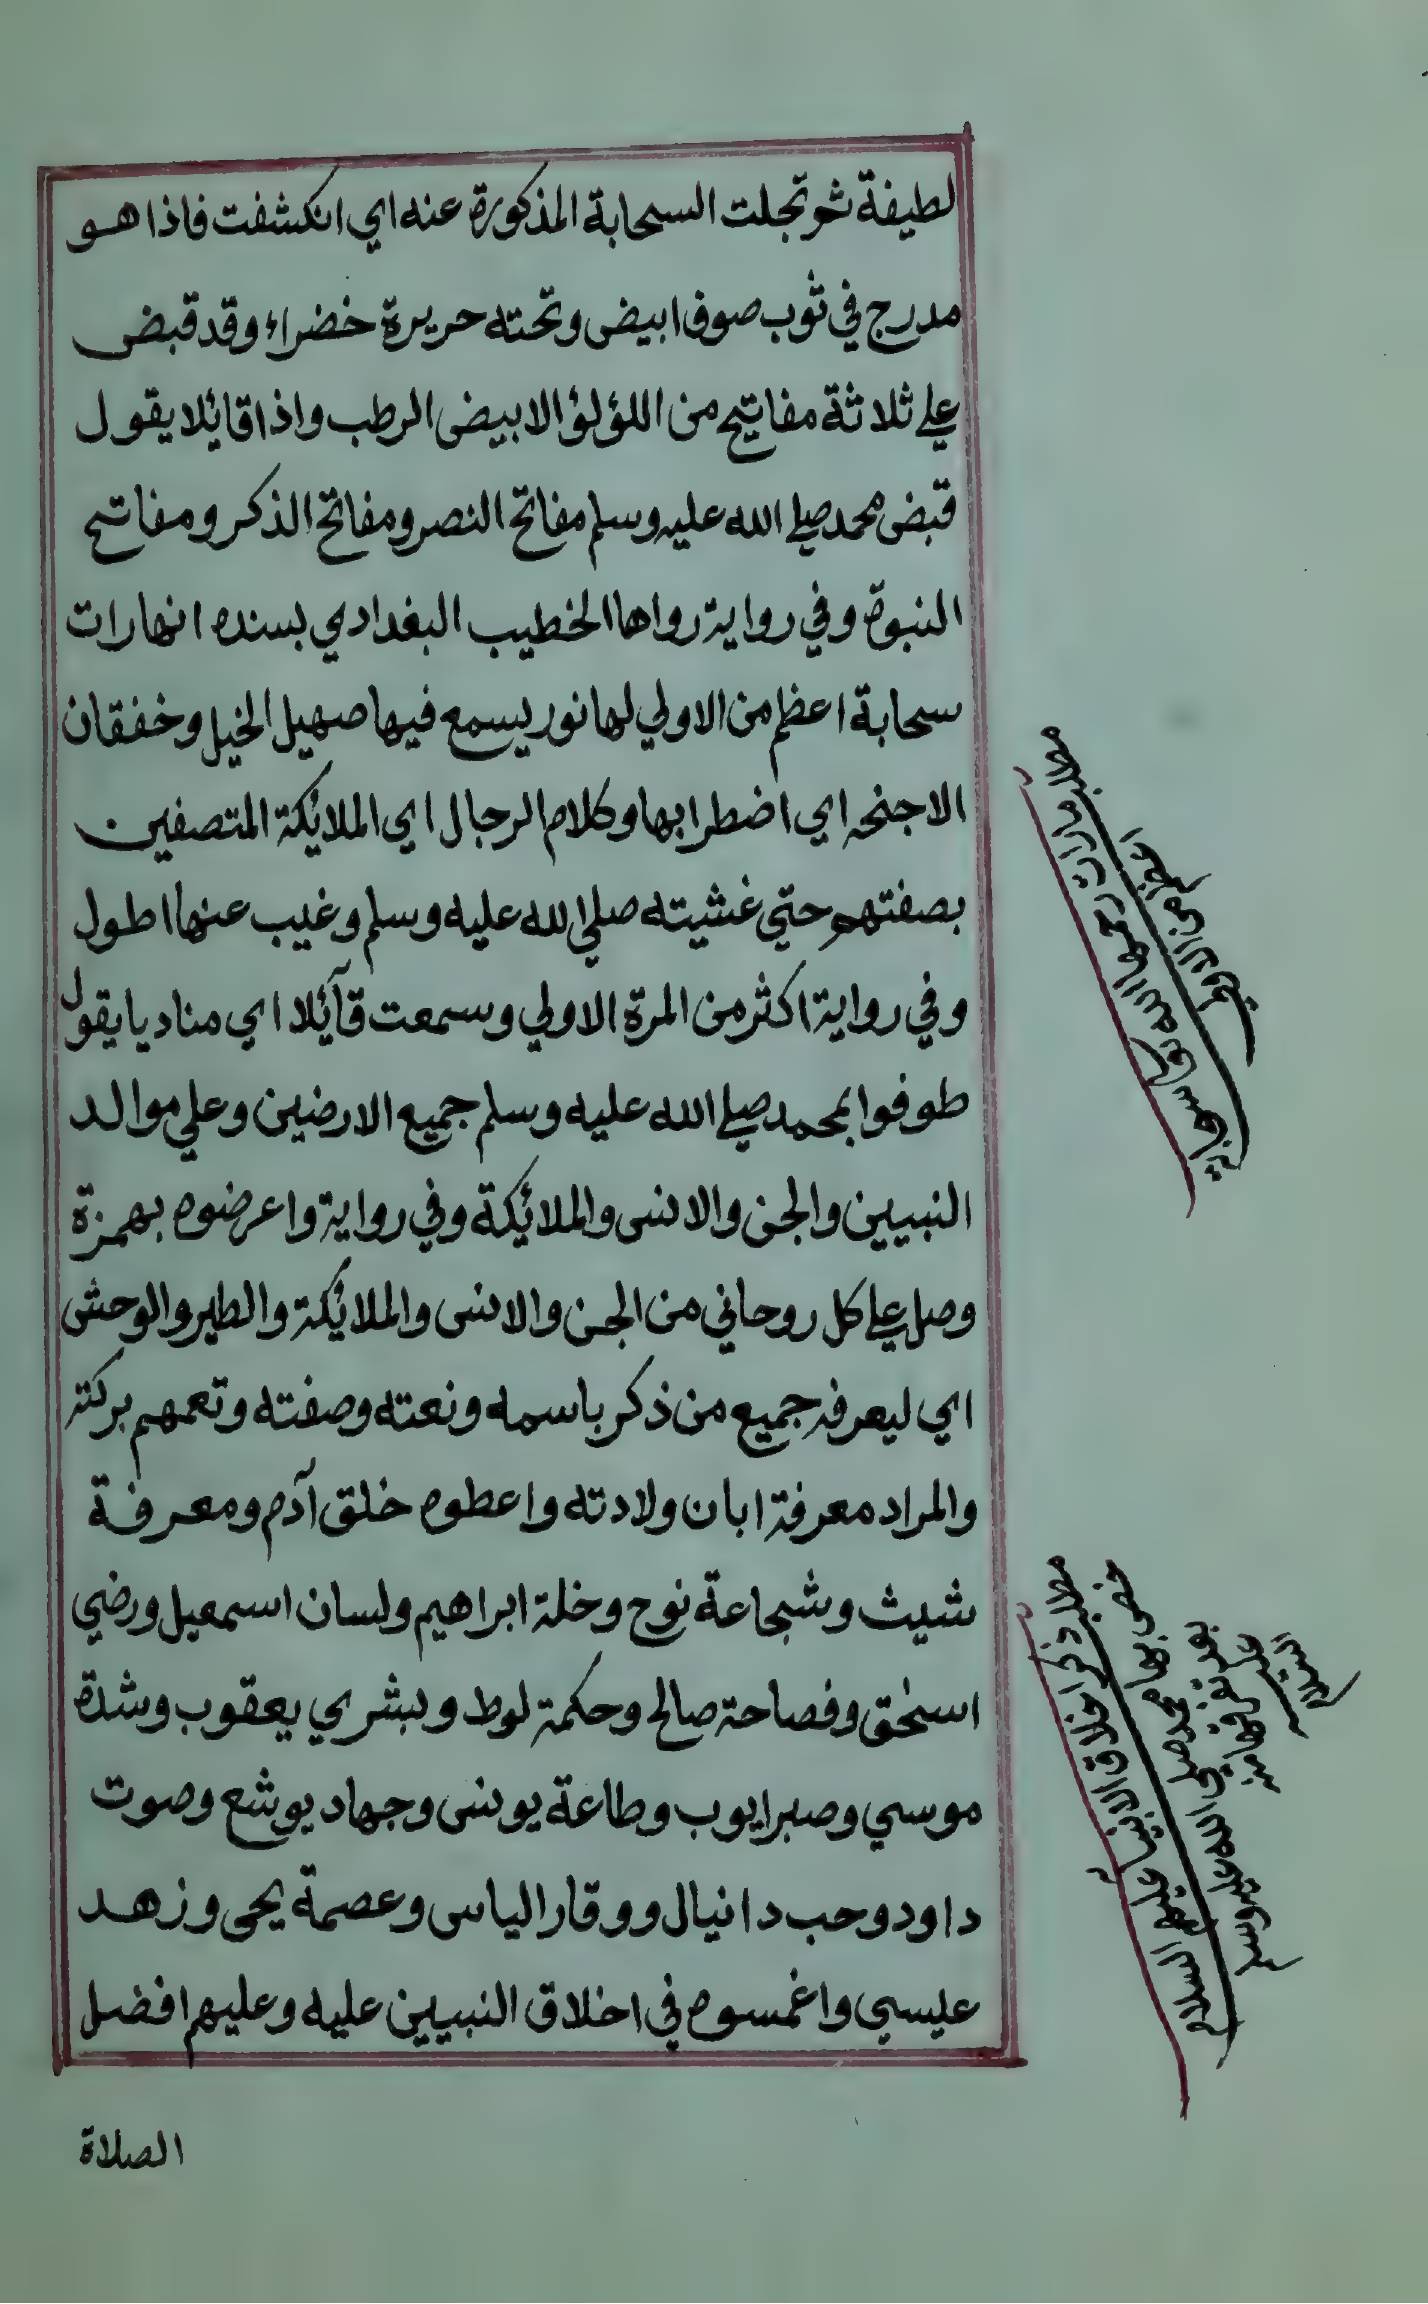 لطيفة ثم تجلت السحابة المذكورة عنه اي انكشفت فاذا هو
مدرج في ثوب صوف ابيض وتحته حريرة خضراء وقد قبض
علي ثلاثة مفاتيح من اللؤلؤ الابيض الرطب واذا قائلا يقول
قبض محمد صلي الله عليه وسلم مفاتح النصر ومفاتح الذكر ومفاتيح
النبوة وفي رواية رواها الخطيب البغدادي بسنده انها رات
سحابة اعظم من الاولي لها نور يسمع فيها صهيل الخيل وخفقان
الاجنحه اي اضطرابها وكلام الرجال اي الملائكة المتصفين
بصفتهم حتي غشيته صلي الله عليه وسلم وغيب عنها اطول
وفي رواية اكثر من المرة الاولي وسمعت قآئلا اي مناديا يقول
طوفوا بمحمد صلي الله عليه وسلم جميع الارضين وعلي موالد
النبيين والجن والانس والملائكة وفي رواية واعرضوه بهمزة
وصل علي كل روحاني من الجن والانس والملائكة والطير والوحش
اي ليعرفه جميع من ذكر باسمه ونعته وصفته وتعمهم بركته
والمراد معرفة ابان ولادته واعطوه خلق آدم ومعرفة
شيث وشجاعة نوح وخلة ابراهيم ولسان اسمعيل ورضي
اسحق وفصاحة صالح وحكمة لوط وبشري يعقوب وشدة
موسي وصبر ايوب وطاعة يونس وجهاد يوشع وصوت
داود وحب دانيال ووقار الياس وعصمة يحى وزهد
عيسي واغمسوه في اخلاق النبيين عليه وعليهم افضل
الصلاة
مطلب ما رات رحمها الله تعالى سحابة
اعظم من الاولي
مطلب ذكر اخلاق الانبيا عليهم السلام
خص بها محمد صلى الله عليه وسلم
السلام